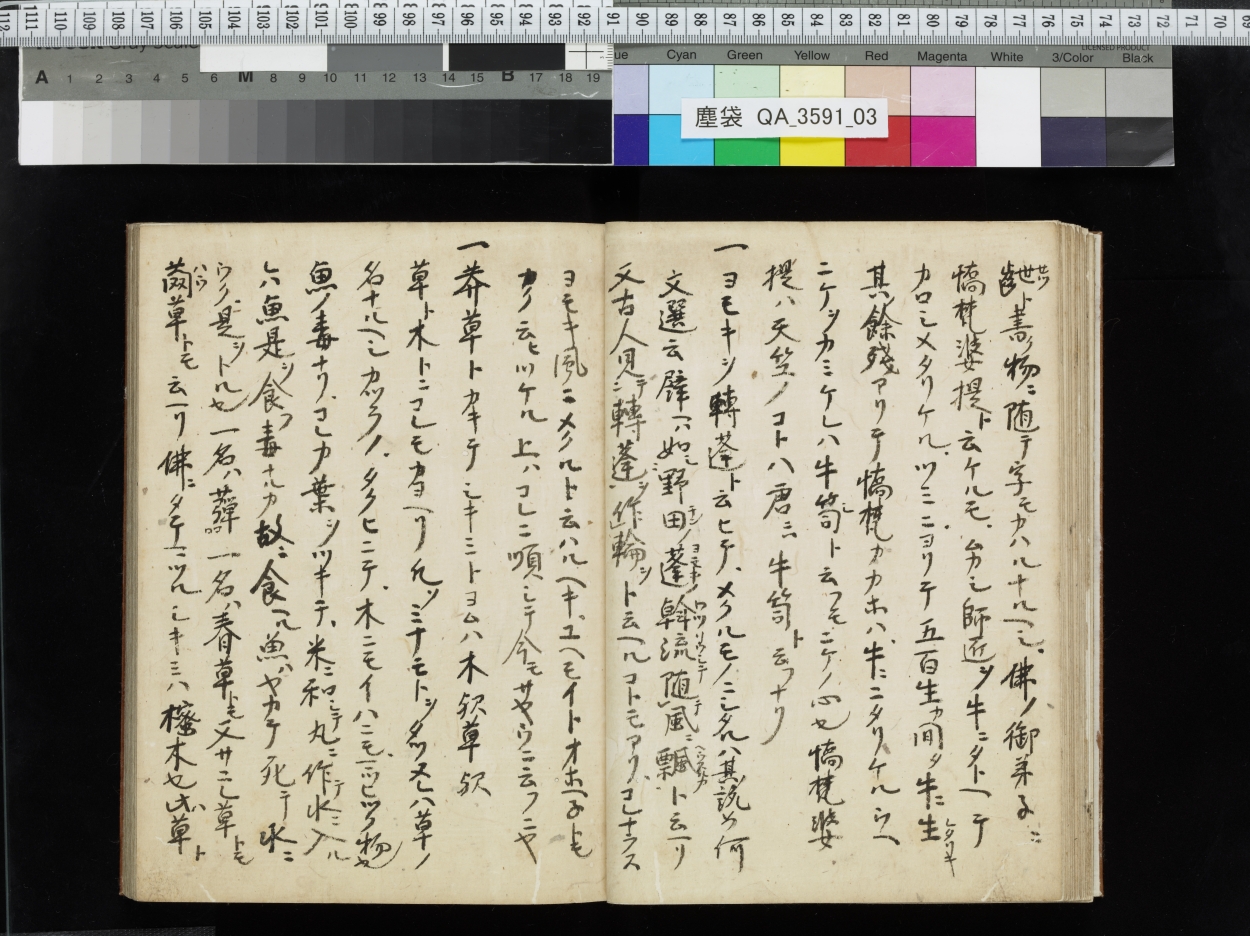 塵袋 QA_3591_03
Cyan Green Yellow Red Magenta White 3/Color Black
LICENSED PRODUCT
A 1 2 3 4 5 6 M 8 9 10 11 12 13 14 15 B 17 18 19
齝ト書ク物ニ随テ字モカハルナルヘシ佛ノ御弟子ニ
憍梵婆提ト云ケルモムカシ師匠ヲ牛ニタトヘテ
カロシメタリケルツミニヨリテ五百生カ間タ牛ニ生レタリキ
其餘殘アリテ憍梵カカホハ牛ニニタリケルウヘ
ニケヲカミケレハ牛笥ト云フモニケノ心也憍梵婆
提ハ天竺ノコトハ唐ニハ牛笥ト云フナリ
一ヨモキヲ轉蓬ト云ヒテメクルモノニシタルハ其説如何
文選云譬ヘハ如シ野田ノ蓬ノ斡流シテ随テ風ニ飄ト云ヘリ
又古人見テ轉蓬ヲ作輪ヲト云ヘルコトモアリコレナラス
ヨモキ風ニメクルト云ハルヘキユヘモイトオホヘネトモ
カク云ヒツケル上ハコレニ順シテ今モサヤウニ云フニヤ
一莽草トカキテシキミトヨムハ木欤草欤
草ト木トニコレモカヨヘリ凡ソミナモトヲタツヌレハ草ノ
名ナルヘシカツラノタクヒニテ木ニモイハニモハヒツク物也
魚ノ毒ナリコレカ葉ヲツキテ米ニ和シテ丸ニ作テ水ニ入ル
レハ魚是ヲ食フ毒ナルカ故ニ食ヘル魚ハヤカテ死テ水ニ
ウク是ヲトル也一名ハ蕇一名ハ春草トモ又サニ草トモ
茵草トモ云ヘリ佛ニタテマツルシキミハ櫁木也此草ト